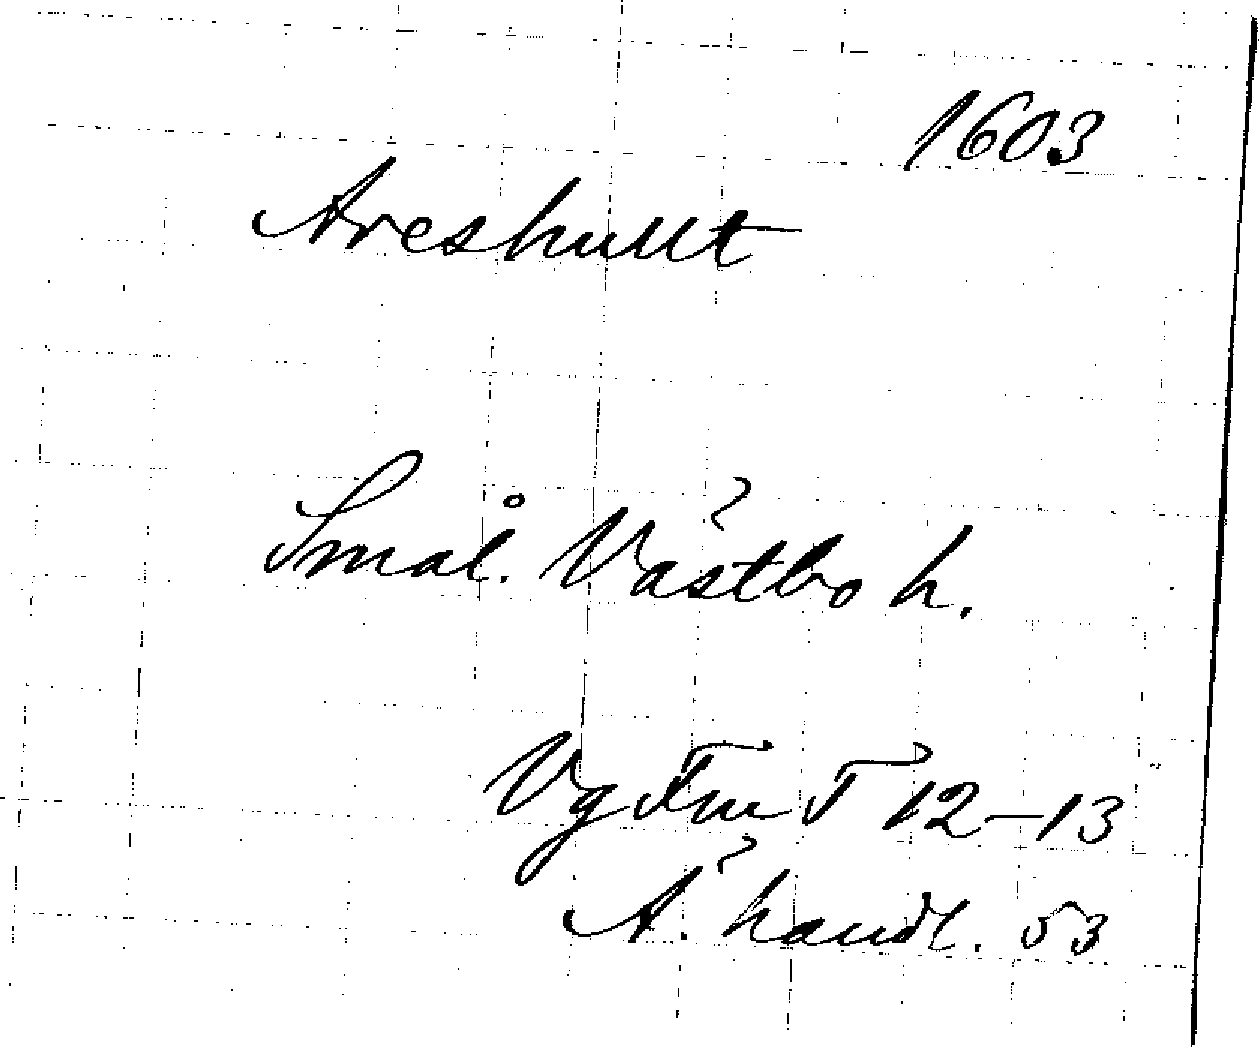 1603
Areshullt
Smål. Västbo h.
Vg Fm T 12-13
Ä. handl. 53